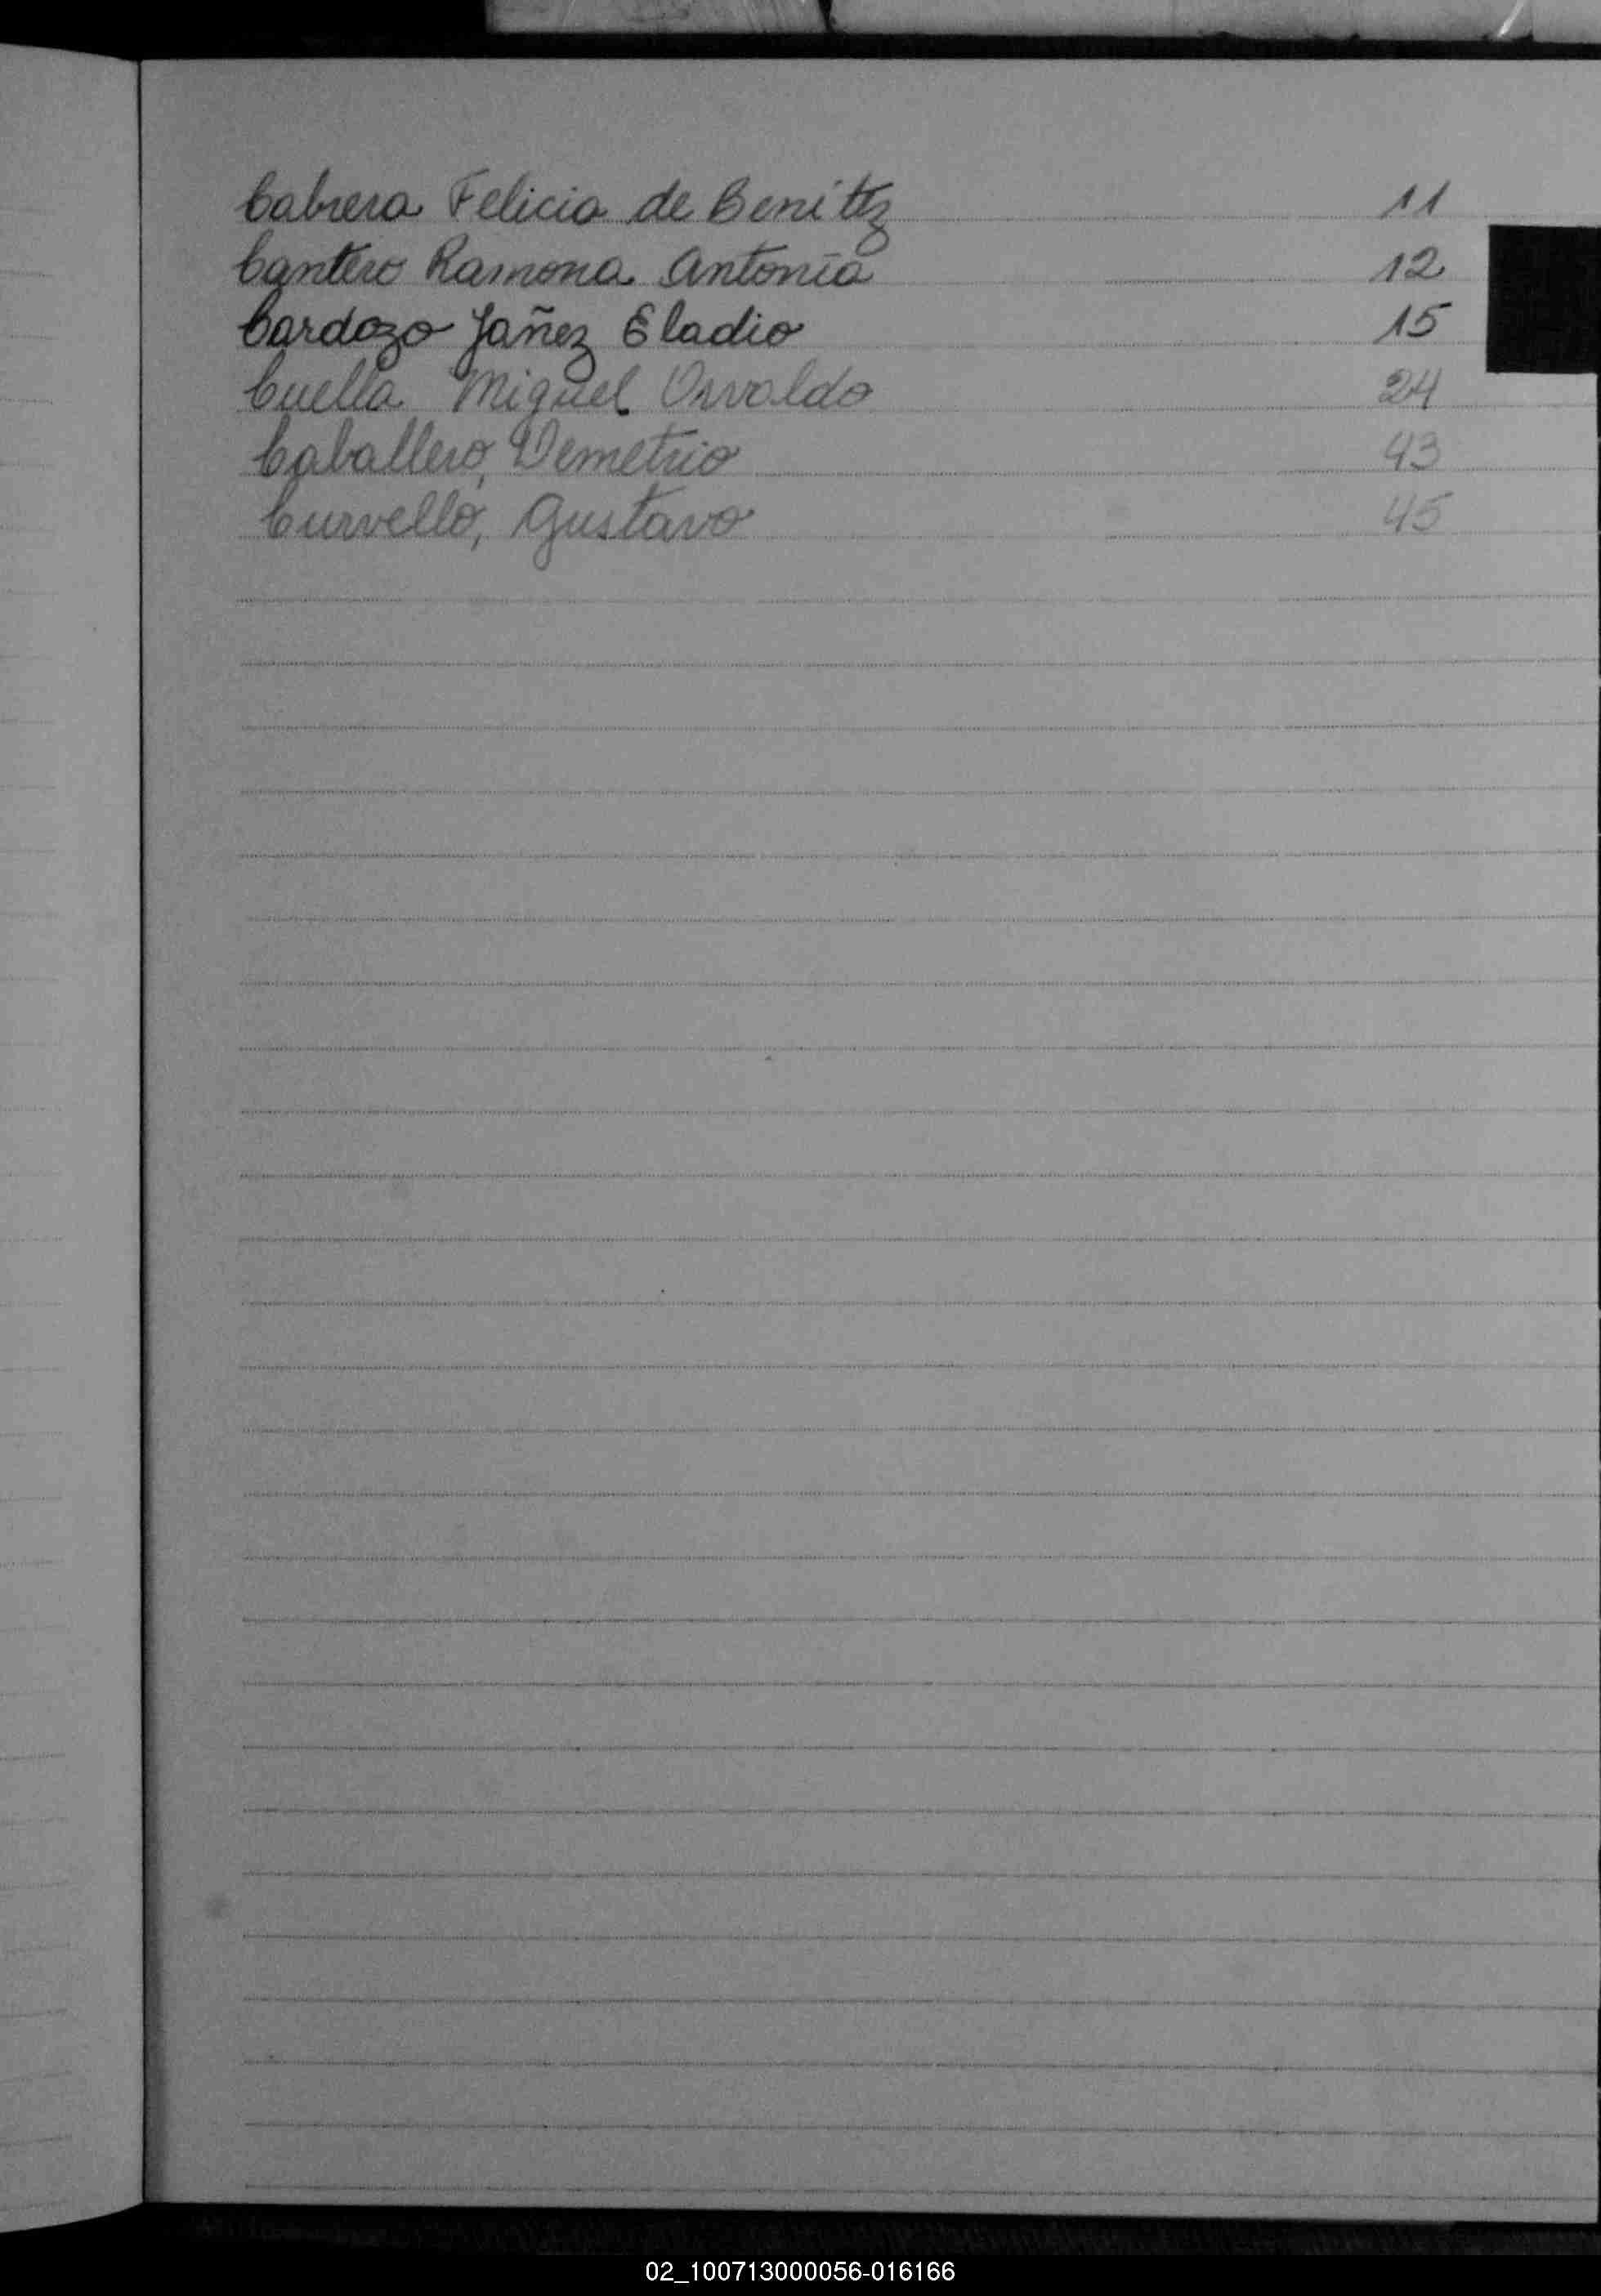 Cabrera Felicia de Benítez 11
Cantero Ramona Antonia 12
Cardozo Jañez Eladio 15
Cuella Miguel Osvaldo 24
Caballero, Demetrio 43
Curvello, Gustavo 45
02_100713000056-016166